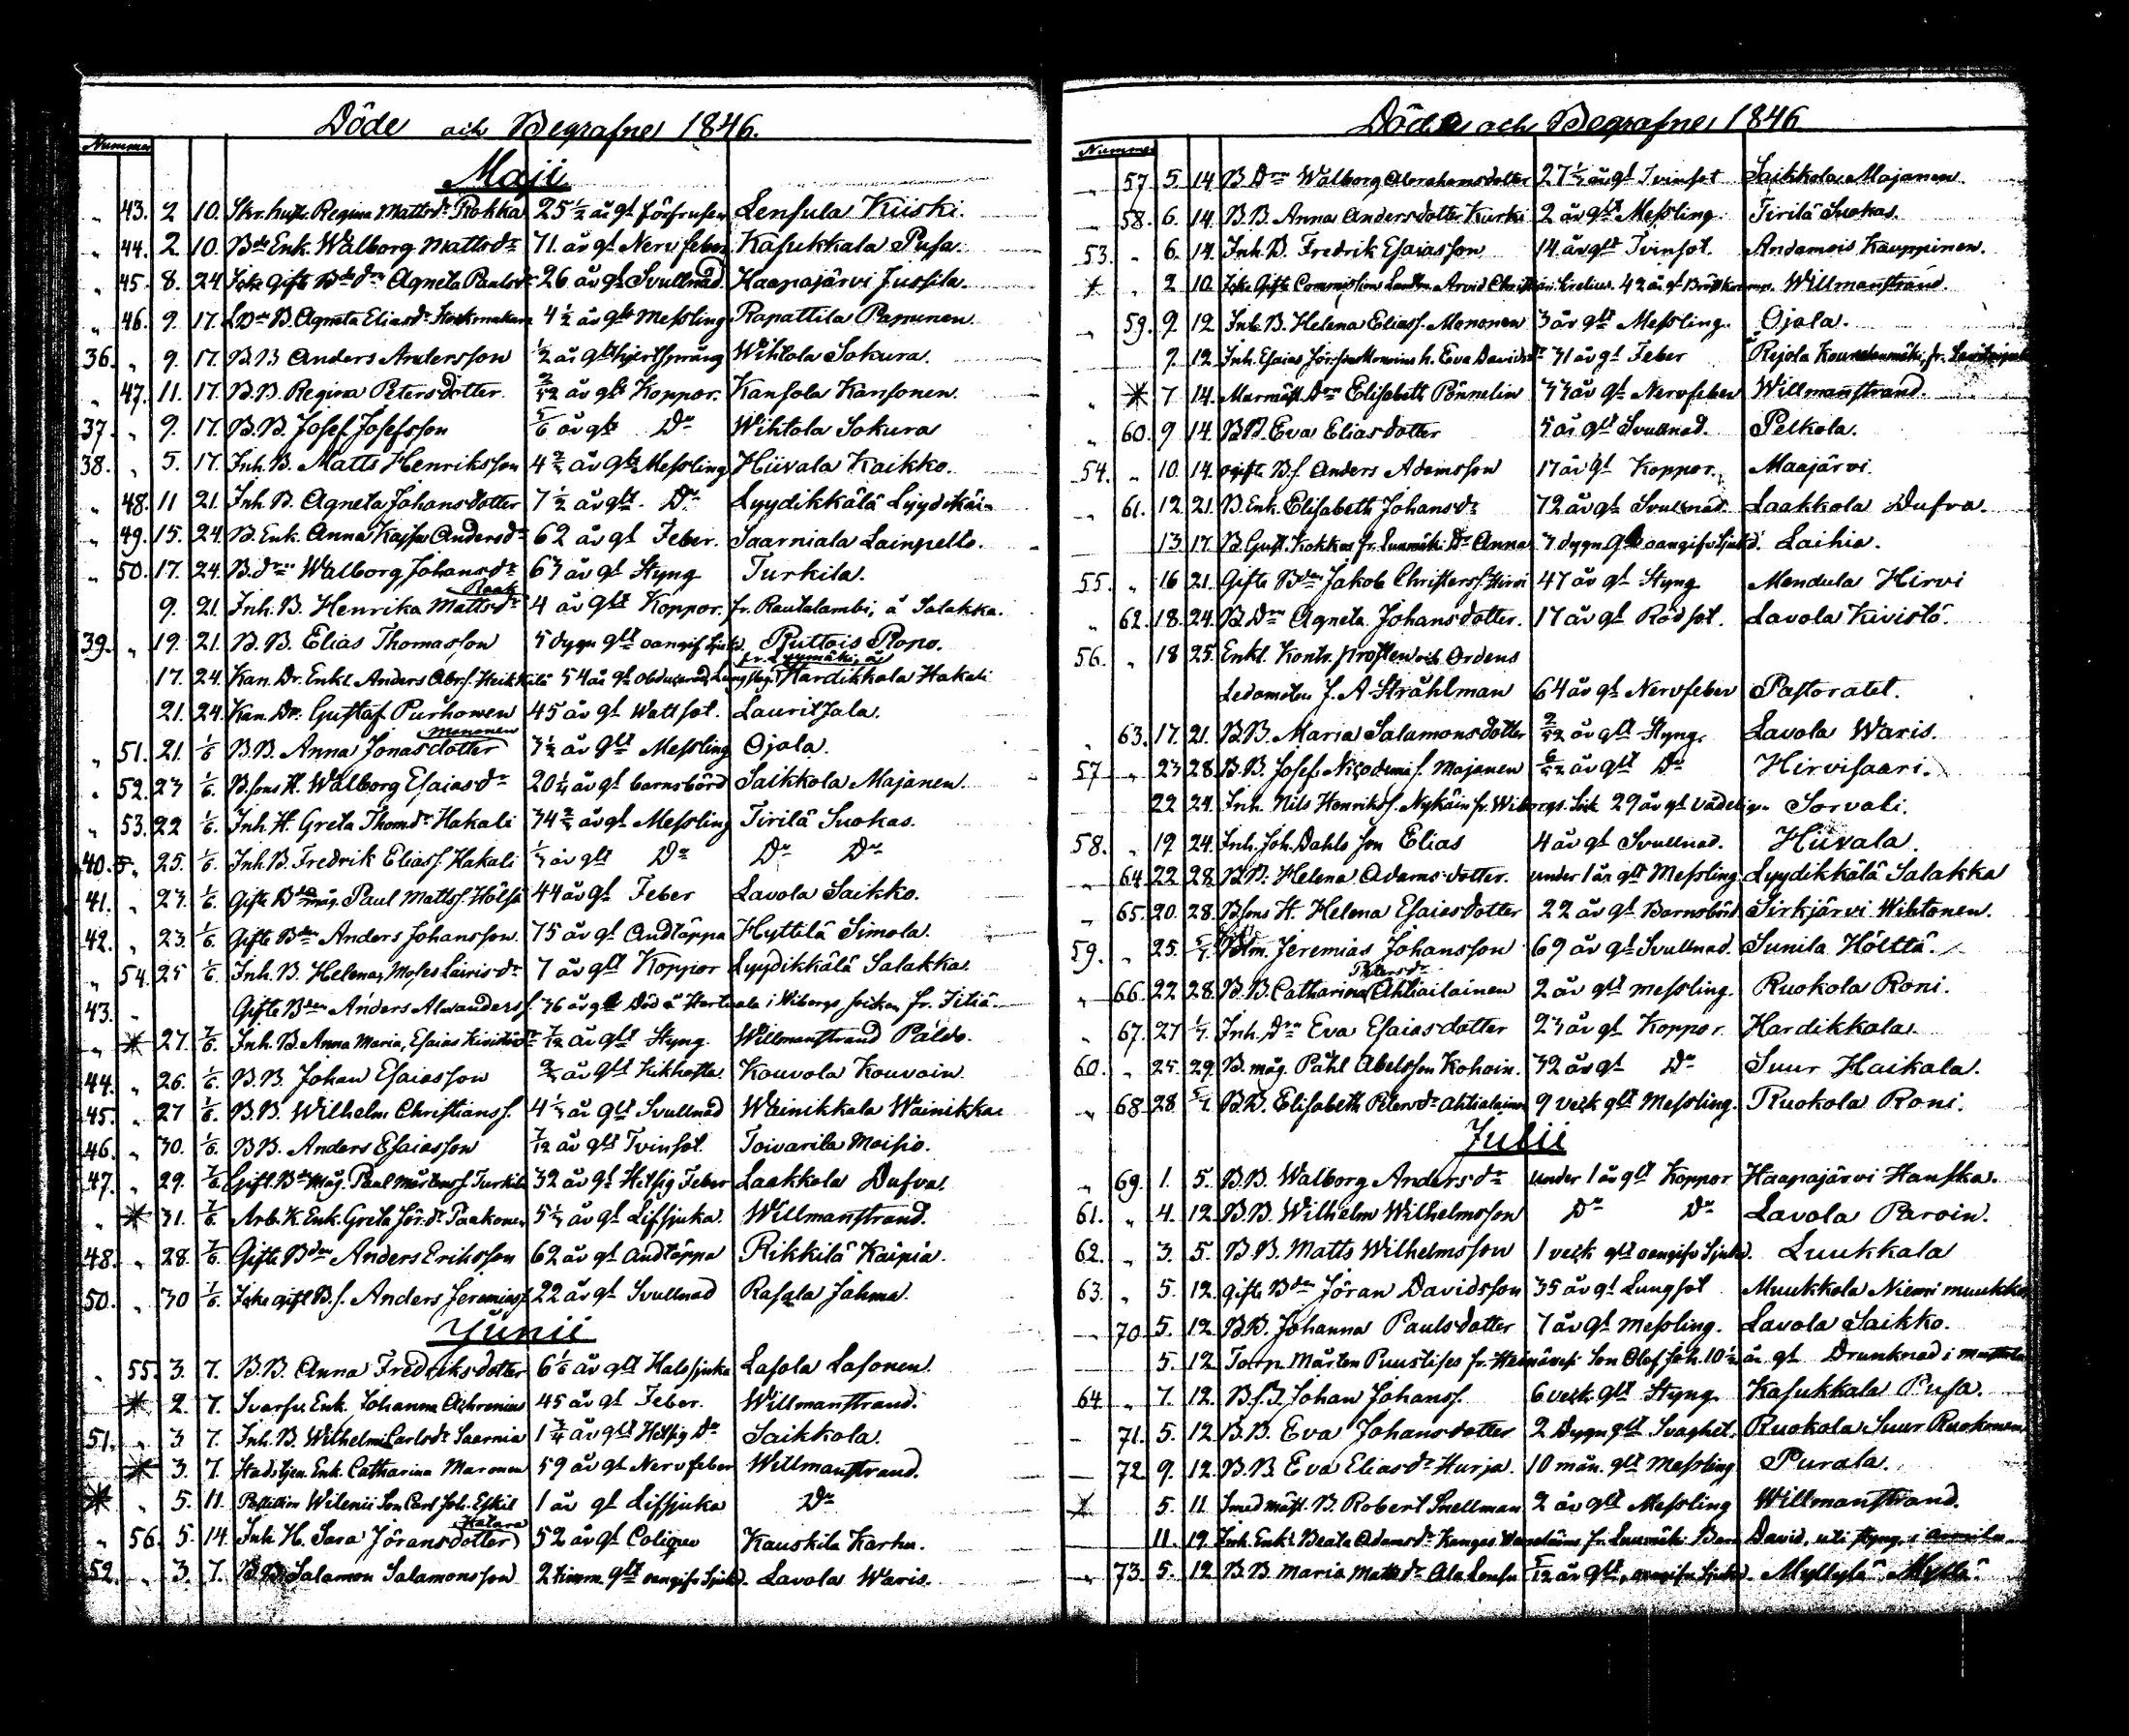 Döde och Begrafne 1846.
Nummer
Maji
" 43. 2 10. Skr. hust. Regina Mattsdr Rokka 25 1/2 år gl förfrusen Lensula Kiiski.
" 44. 2. 10. Bde Enk. Walborg Mattsdr 71. år gl Nervfeber Kasukkala Pusa.
" 45. 8. 24. Icke Gifte Bde drn Agneta Paulsdr 26 år gl Svullnad Haapajärvi Jussila.
" 46. 9. 17. B. Agneta Eliasdr 4 1/2 år glt Messling Rapattila Papunen.
36. " 9. 17. B.B. Anders Andersson 1/2 år glt hjertsprång Wihtola Sokura.
" 47. 11. 17. B.B. Regina Petersdotter 2/12 år glt Koppor. Kansola Kansonen.
37. " 9. 17. B.B. Josef Josefsson 5/6 år glt Do Wihtola Sokura
38. " 5. 17. Inh. B. Matts Henriksson 4 2/3 år glt Messling Hiivala Kaikko.
" 48. 11 21. Inh. B. Agneta Johansdotter 7 1/2 år glt. Do Lyydikkälä Lyydikäin
" 49. 15. 24. B. Enk. Anna Kajsa Andersdr 62 år gl Feber. Saarniala Lainpelto.
" 50. 17. 24. B. drn Walborg Johansdr 63 år gl Styng Turkila.
9. 21. Inh. B. Henrika Mattsdr Raak 4 år glt Koppor. fr. Rautalambi, å Salakka.
39. " 19. 21. B.B. Elias Thomasson 5 dygn glt oangif Sjukd. Ruttois Ropo.
17. 24. Kan. Dr. Enkl Anders Abr.s. Heikkilä 54 år gl obducerad, Lungsigt fr. Luumäki, å Hardikkala Hakali
21. 24. Kan. Dr. Gustaf Purhonen 45 år gl Wattsot. Lauritsala.
" 51. 21. 1/6 B.B. Anna Jonasdotter Mononen 3 1/2 år glt Messling Ojala.
" 52. 23 1/6. B. sons H. Walborg Esaiasdr 20 1/4 år gl barnsbörd Saikkola Majanen.
" 53. 22 1/6. Inh. H. Greta Thomdr Hakali 34 2/3 år gl Messling Tirilä Suokas.
40. " 25. 1/6. Inh. B. Fredrik Eliass. Hakali 1/3 år glt Do Do Do
41. " 23. 1/6. Gifte Bde måg. Paul Mattss. Hölsä 44 år gl Feber Lavola Saikko.
42. " 23. 1/6. Gifte Bden Anders Johansson. 75 år gl Andtäppa Hyttilä Simola.
" 54. 25 1/6 Inh. B. Helena, Moses Lairisdr 7 år glt Koppor Lyydikkälä Salakka.
43. " Gifte Bden Anders Alexanderss. 36 år gl Död å Hartaala i Wiborgs socken fr. Jitiä.
" * 27. 7/6. Inh. B. Anna Maria, Esaias Kivistö dr 7/12 år glt Styng. Willmanstrand Paldo.
44. " 26. 1/6. B.B. Johan Esaiasson 2/3 år glt Kikhosta. Kouvola Kouvoin.
45. " 27 1/6. B.B. Wilhelm Christianss. 4 1/3 år glt Svullnad Wainikkala Wainikka
46. " 30. 1/6. BB. Anders Esaiasson 7/12 år glt Tvinsot. Toivarila Moisio.
47. " 29. 7/6. Gift. Bde Måg. Paul Mårtenss Turkila 32 år gl Hetsig Feber Laakkola Dufva.
" * 31. 7/6. Arb. K. Enk. Greta Jör.dr Paakonen 51 år gl Lifsjuka. Willmanstrand.
48. " 28. 7/6. Gifte Bden Anders Eriksson 62 år gl andtäppa Rikkilä Kaipia.
50. " 30 7/6. Icke gift B.s. Anders Jeremiass 22 år gl Svullnad Rasala Jahma.
Junii
" 55. 3. 7. B.B. Anna Fredriksdotter 6 1/6 år glt Halssjuka Lasola Lasonen.
* 2. 7. Svarfv. Enk. Johanna Achrenius 45 år gl Feber. Willmanstrand.
51. " 3. 7. Inh. B. Wilhelm Carlsdr Saarnia 1 3/4 år glt Hetsig Do Saikkola.
* 3. 7. Stadstjen. Enk. Catharina Maronen 59 år gl Nervfeber Willmanstrand.
* " 5. 11. Wilenii Son Carl Joh. Eskil 1 år gl Lifsjuka Do
" 56. 5. 14. Inh H. Sara Jöransdotter Katara 52 år gl Colique Kauskila Karhu.
52. " 3. 7. B.B. Salamon Salamonsson 2 timm. glt oangifv Sjukd. Lavola Waris.
Döde och Begrafne 1846
Nummer
" 57 5. 14 B. Drn Walborg Abrahamsdotter 27 1/2 år gl Tvinsot Saikkola Majanen.
" 58. 6. 14. B.B. Anna Andersdotter Kurki 2 år glt Messling. Tirilä Suokas.
53. " 6. 14. Inh. B. Fredrik Esaiasson 14 år glt Tvinsot. Andamois Kauppinen.
* " 2 10. Icke Gifte Commissions Landtm. Arvid Christian 42 år gl Bröstkramp. Willmanstrand.
" 59. 9. 12. Inh. B. Helena Eliass. Mononen 3 år glt Messling. Ojala.
7. 12. Inh. Esaias Jörsson h. Eva Davidsdr 31 år gl Feber
" * 7 14. Elisabeth Pönnelin 33 år gl Nervfeber Willmanstrand.
" 60. 9 14. B.B. Eva Eliasdotter 5 år glt Svullnad. Pelkola.
54. " 10. 14. ogifte B.s. Anders Adamsson 17 år gl Koppor. Maajärvi.
" 61. 12 21. B. Enk. Elisabeth Johansdr 72 år gl Svullnad. Laakkola Dufva.
13. 17. B. Gust. Kokkos fr. Luumäki Dr Anna 3 dygn gl oangifv Sjukd. Laihia.
55. " 16 21. Gifte Bden Jakob Christerss. Hirvi 47 år gl Styng Mendula Hirvi
" 62. 18. 24. B. Drn Agneta Johansdotter. 17 år gl Rödsot. Lavola Kivistö.
56. " 18 25. Enkl. Kontr. prosten och Ordens
Ledamoten J. A. Stråhlman 64 år gl Nervfeber Pastoratet.
" 63. 17. 21. B.B. Maria Salamonsdotter 2/12 år glt Styng. Lavola Waris.
57 " 23 28. B.B. Josef Nicodemi s. Majanen 6/12 år glt Do Hirvisaari.
22 24. Inh. Nils Henrikss. Nykäin fr. Wiborgs Sok 29 år gl vådeligen Sorvali.
58. " 19 24. Inh. Joh. Dahls son Elias 4 år gl Svullnad. Hiivala.
" 64. 22 28. B.B. Helena Adamsdotter. under 1 år glt Messling. Lyydikkälä Salakka
" 65. 20. 28. B. sons H. Helena Esaiasdotter 22 år gl Barnsbörd Sirkjärvi Wihtonen.
59. " 25. 5/7. Jeremias Johansson 69 år gl Svullnad. Sunila Hölttä.
" 66. 22 28. B.B. Catharina Petersdr Ahtiailainen 2 år glt messling. Ruokola Roni.
" 67. 27 1/7. Inh. Drn Eva Esaiasdotter 23 år gl Koppor. Hardikkala.
60. " 25. 29. B. måg. Påhl Abelsson Kohoin. 32 år gl Do Suur Haikala.
" 68 28. 5/7. B.B. Elisabeth Petersdr Ahtialainen 9 veck glt Messling. Ruokola Roni.
Julii
" 69. 1. 5. B.B. Walborg Andersdr under 1 år glt Koppor Haapajärvi Hanska.
61. " 4. 12. B.B. Wilhelm Wilhelmsson Do Do Lavola Paroin.
62. " 3. 5. B.B. Matts Wilhelmsson 1 veck glt oangifv Sjukd. Luukkala
63. " 5. 12. gifte Bden Jöran Davidsson 35 år gl Lungsot Muukkola Niemi muukko
" 70. 5. 12. B.B. Johanna Paulsdotter 7 år gl Messling. Lavola Saikko.
5. 12 Torp. Mårten Puustises fr. Son Olof Joh. 10 1/2 år gl Drunknad i
64 " 7. 12. B.B. Johan Johanss. 6 veck. glt Styng. Kasukkala Pusa.
71. 5. 12. B.B. Eva Johansdotter 2 dygn glt Svaghet. Ruokola Suur Ruokonen
72. 9. 12. B.B. Eva Eliasdr Hurja. 10 mån. glt Messling Purala.
* 5. 11 Smed mäst. B. Robert Snellman 2 år glt Messling Willmanstrand.
11. 19. Inh. Enkl Beata Adamsdr fr. Luumäki Barn David, uti styng.
" 73. 5. 12 B.B. Maria Mattsdr Ala Lensu 5/12 år glt, oangifv Sjukd. Myllylä Mylla.